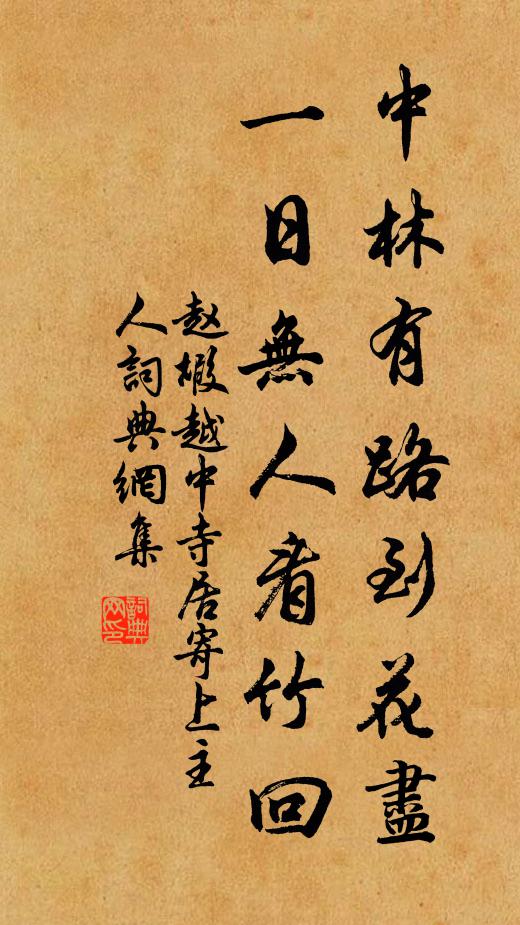 中林有路到花盡
一日無人看竹回
赵嘏越中寺居寄上主
人詞典網集
詞典
网印